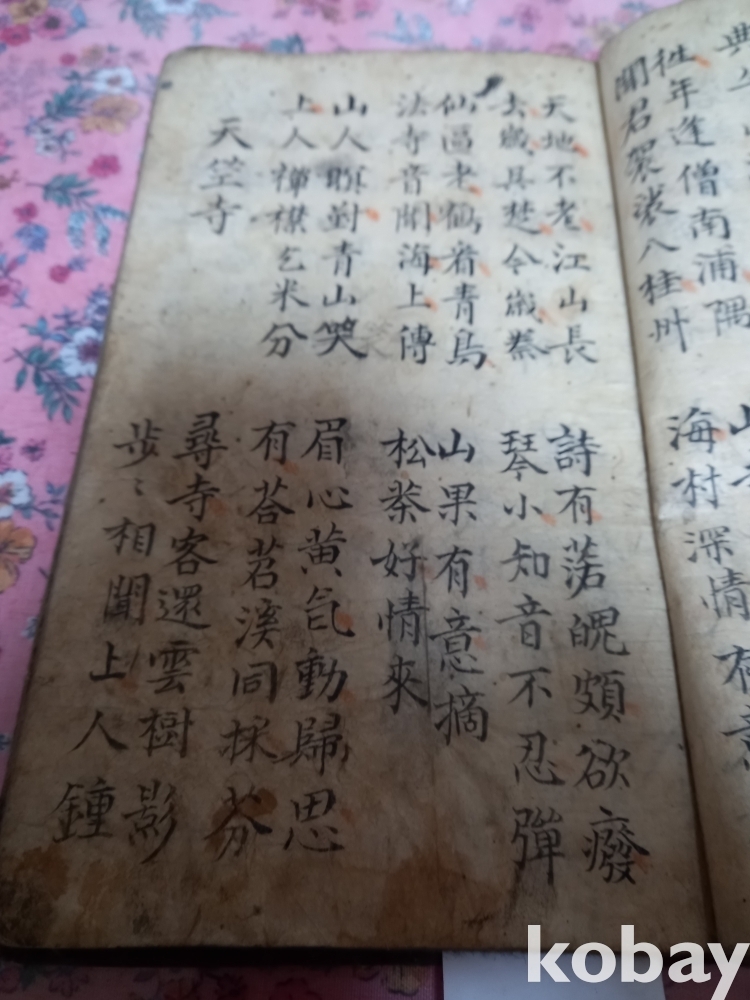 典
徃年逢僧南浦隅
聞君袈裟入桂州
山
海村深情有意
天地不老江山長
去歲具楚今歲蔡
仙區老鶴看青鳥
法寺音聞海上傳
山人對青山笑
上人禪榻乞米分
天竺寺
詩有魄頗欲癈
琴小知音不忍彈
山果有意摘
松茶好情來
眉心黄气動歸思
有荅苕溪同採芬
尋寺客還雲樹影
步〻相聞上人鍾
kobay